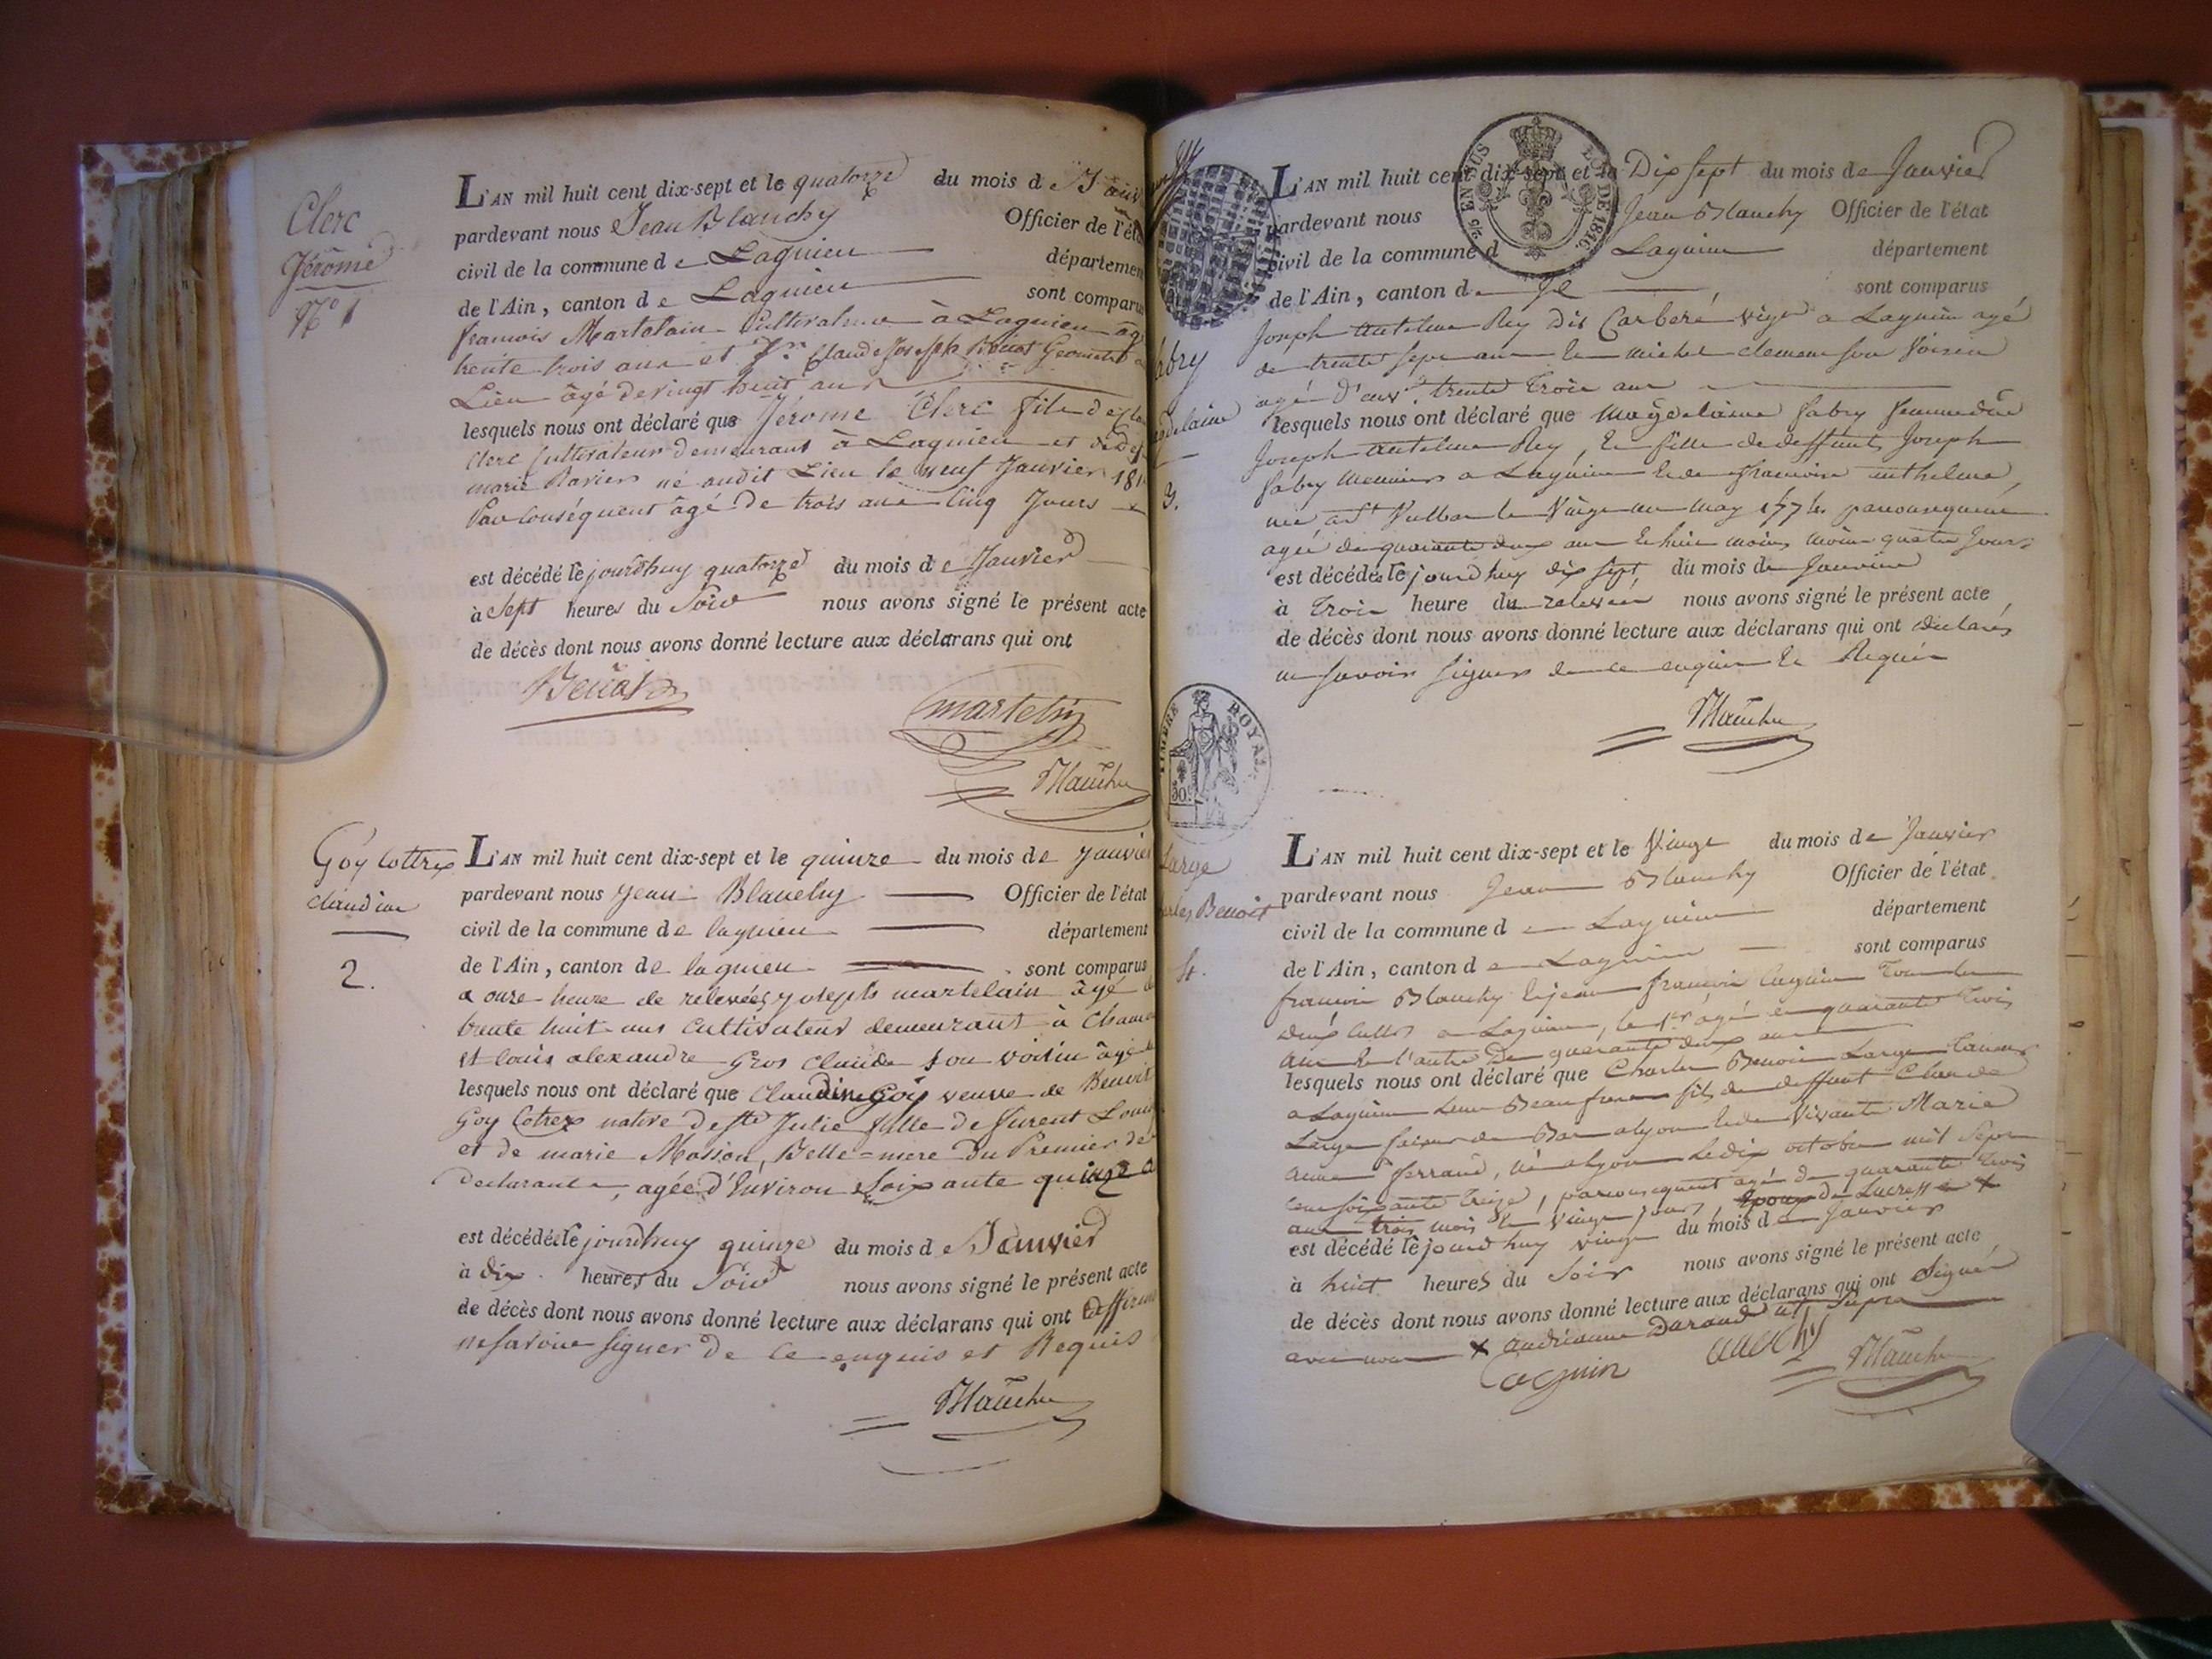 Clerc
Jérome
N° 1
L'AN mil huit cent dix-sept et le quatorze du mois de Janv
pardevant nous Jean Blanchy Officier de l'éta
civil de la commune de Lagnieu départemen
de l'Ain, canton de Lagnieu sont comparus
francois Martelain Cultivateur à Lagnieu ag
trente trois ans et Sr. Claude Joseph Benoit Geomètre
Lieu âgé de vingt huit ans
lesquels nous ont déclaré que Jérome Clerc fils de
Clerc Cultivateur demeurant à Lagnieu et de
marie Ravier né audit Lieu le neuf Janvier 181
Par Conséquent âgé De trois ans Cinq Jours
est décédé le jourdhuy quatorze du mois de Janvier
à Sept heures du Soir nous avons signé le présent acte
de décès dont nous avons donné lecture aux déclarans qui ont
martelin
Blanchy
Goy Cottrex
claudine
2.
L'AN mil huit cent dix-sept et le quinze du mois de janvier
pardevant nous jean Blanchy Officier de l'état
civil de la commune de lagnieu département
de l'Ain, canton de lagnieu sont comparus
a onze heure de relevée joseph martelain âgé d
trente huit ans Cultivateur demeurant à
et louis alexandre Gros Claude son voisin âgé
lesquels nous ont déclaré que Claudine Goy veuve de Benoit
Goy Cotrex native de Ste Julie fille de
et de marie Masson, Belle=mere Du Premier de
Declarants, agée d'Environ Soixante quinze a
est décédée le jourdhuy quinze du mois de Janvier
à dix heures du Soir nous avons signé le présent acte
de décès dont nous avons donné lecture aux déclarans qui ont
ne savoir signer de ce enquis et Requis
Blanchy
abry
gdelaine
3.
5/c. EN SUS LOI DE 1816.
L'AN mil huit cent dix-sept et le Dix sept du mois de Janvier
pardevant nous Jean Blanchy Officier de l'état
civil de la commune d Lagnieu département
de l'Ain, canton d sont comparus
Joseph antelme Rey dit Carberé a Lagnieu agé
de trente sept ans et michel clement son Voisin
agé D'env. trente trois ans
lesquels nous ont déclaré que Magdelaine fabry femme dud
Joseph antelme Rey, et fille de deffunt Joseph
fabry Meunier a Lagnieu et de francoise anthelme,
née a St Vulbas le Vingt un may 1774 parconsequent
agée de quarante deux ans et huit mois moins quatre jours
est décédée le jourdhuy dix sept du mois de Janvier
à trois heure de relevée nous avons signé le présent acte
de décès dont nous avons donné lecture aux déclarans qui ont declarés
ne savoir signer de ce enquis et Requis
Blanchy
TIMBRE ROYAL
50c
Large
arles Benoit
4.
L'AN mil huit cent dix-sept et le Vingt du mois de Janvier
pardevant nous Jean Blanchy Officier de l'état
civil de la commune de Lagnieu département
de l'Ain, canton de Lagnieu sont comparus
francois Blanchy et jean francois Cagnin Tous les
deux a Lagnieu, le 1er agé de quarante trois
ans et l'autre De quarante deux ans
lesquels nous ont déclaré que Charles Benoit Large
a Lagnieu leur Beau frere fils de deffunt Claude
Large faiseur de Bas a lyon et de vivante Marie
anne ferrand, né a lyon le dix octobre mil sept
cent soixante treize, parconsequent agé de quarante trois
ans trois mois et vingt jours, Epoux de Lucresse x
est décédé le jourdhuy vingt du mois de Janvier
à huit heures du Soir nous avons signé le présent acte
de décès dont nous avons donné lecture aux déclarans qui ont signé
avec nous x andréanne Durand
Cagnin Blanchy